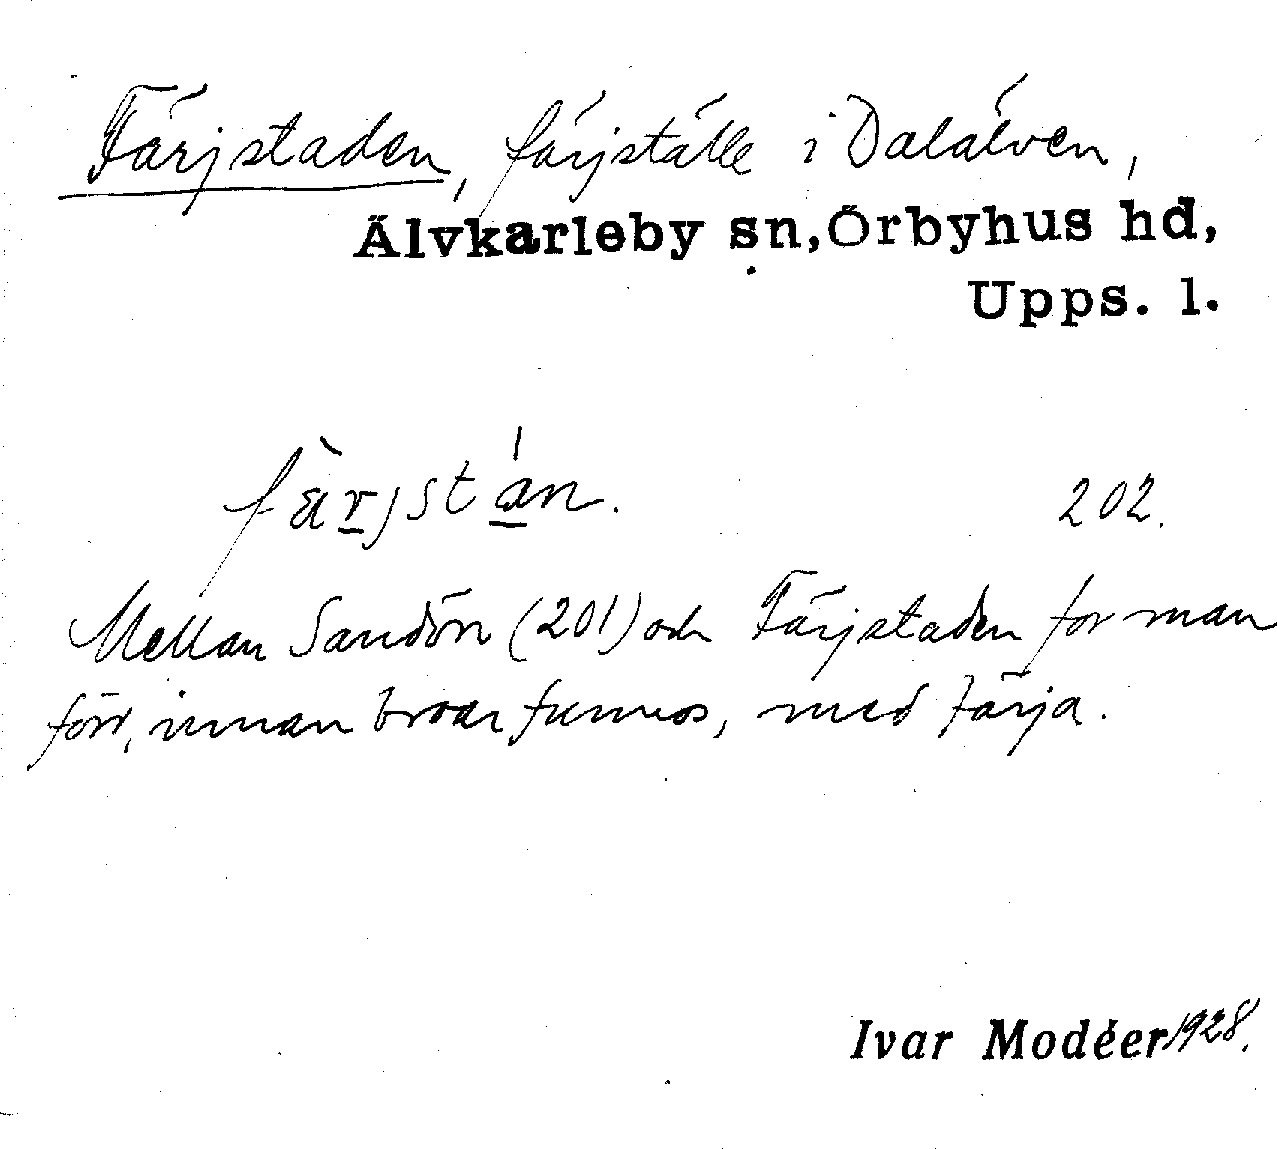 Färjstaden, färjställe i Dalälven,
Älvkarleby sn, Örbyhus hd,
Upps. l.
fä̀rjstán. 202.
Mellan Sandön (201) och Färjstaden for man
förr, innan broar funnos, med färja.
Ivar Modéer 1928.